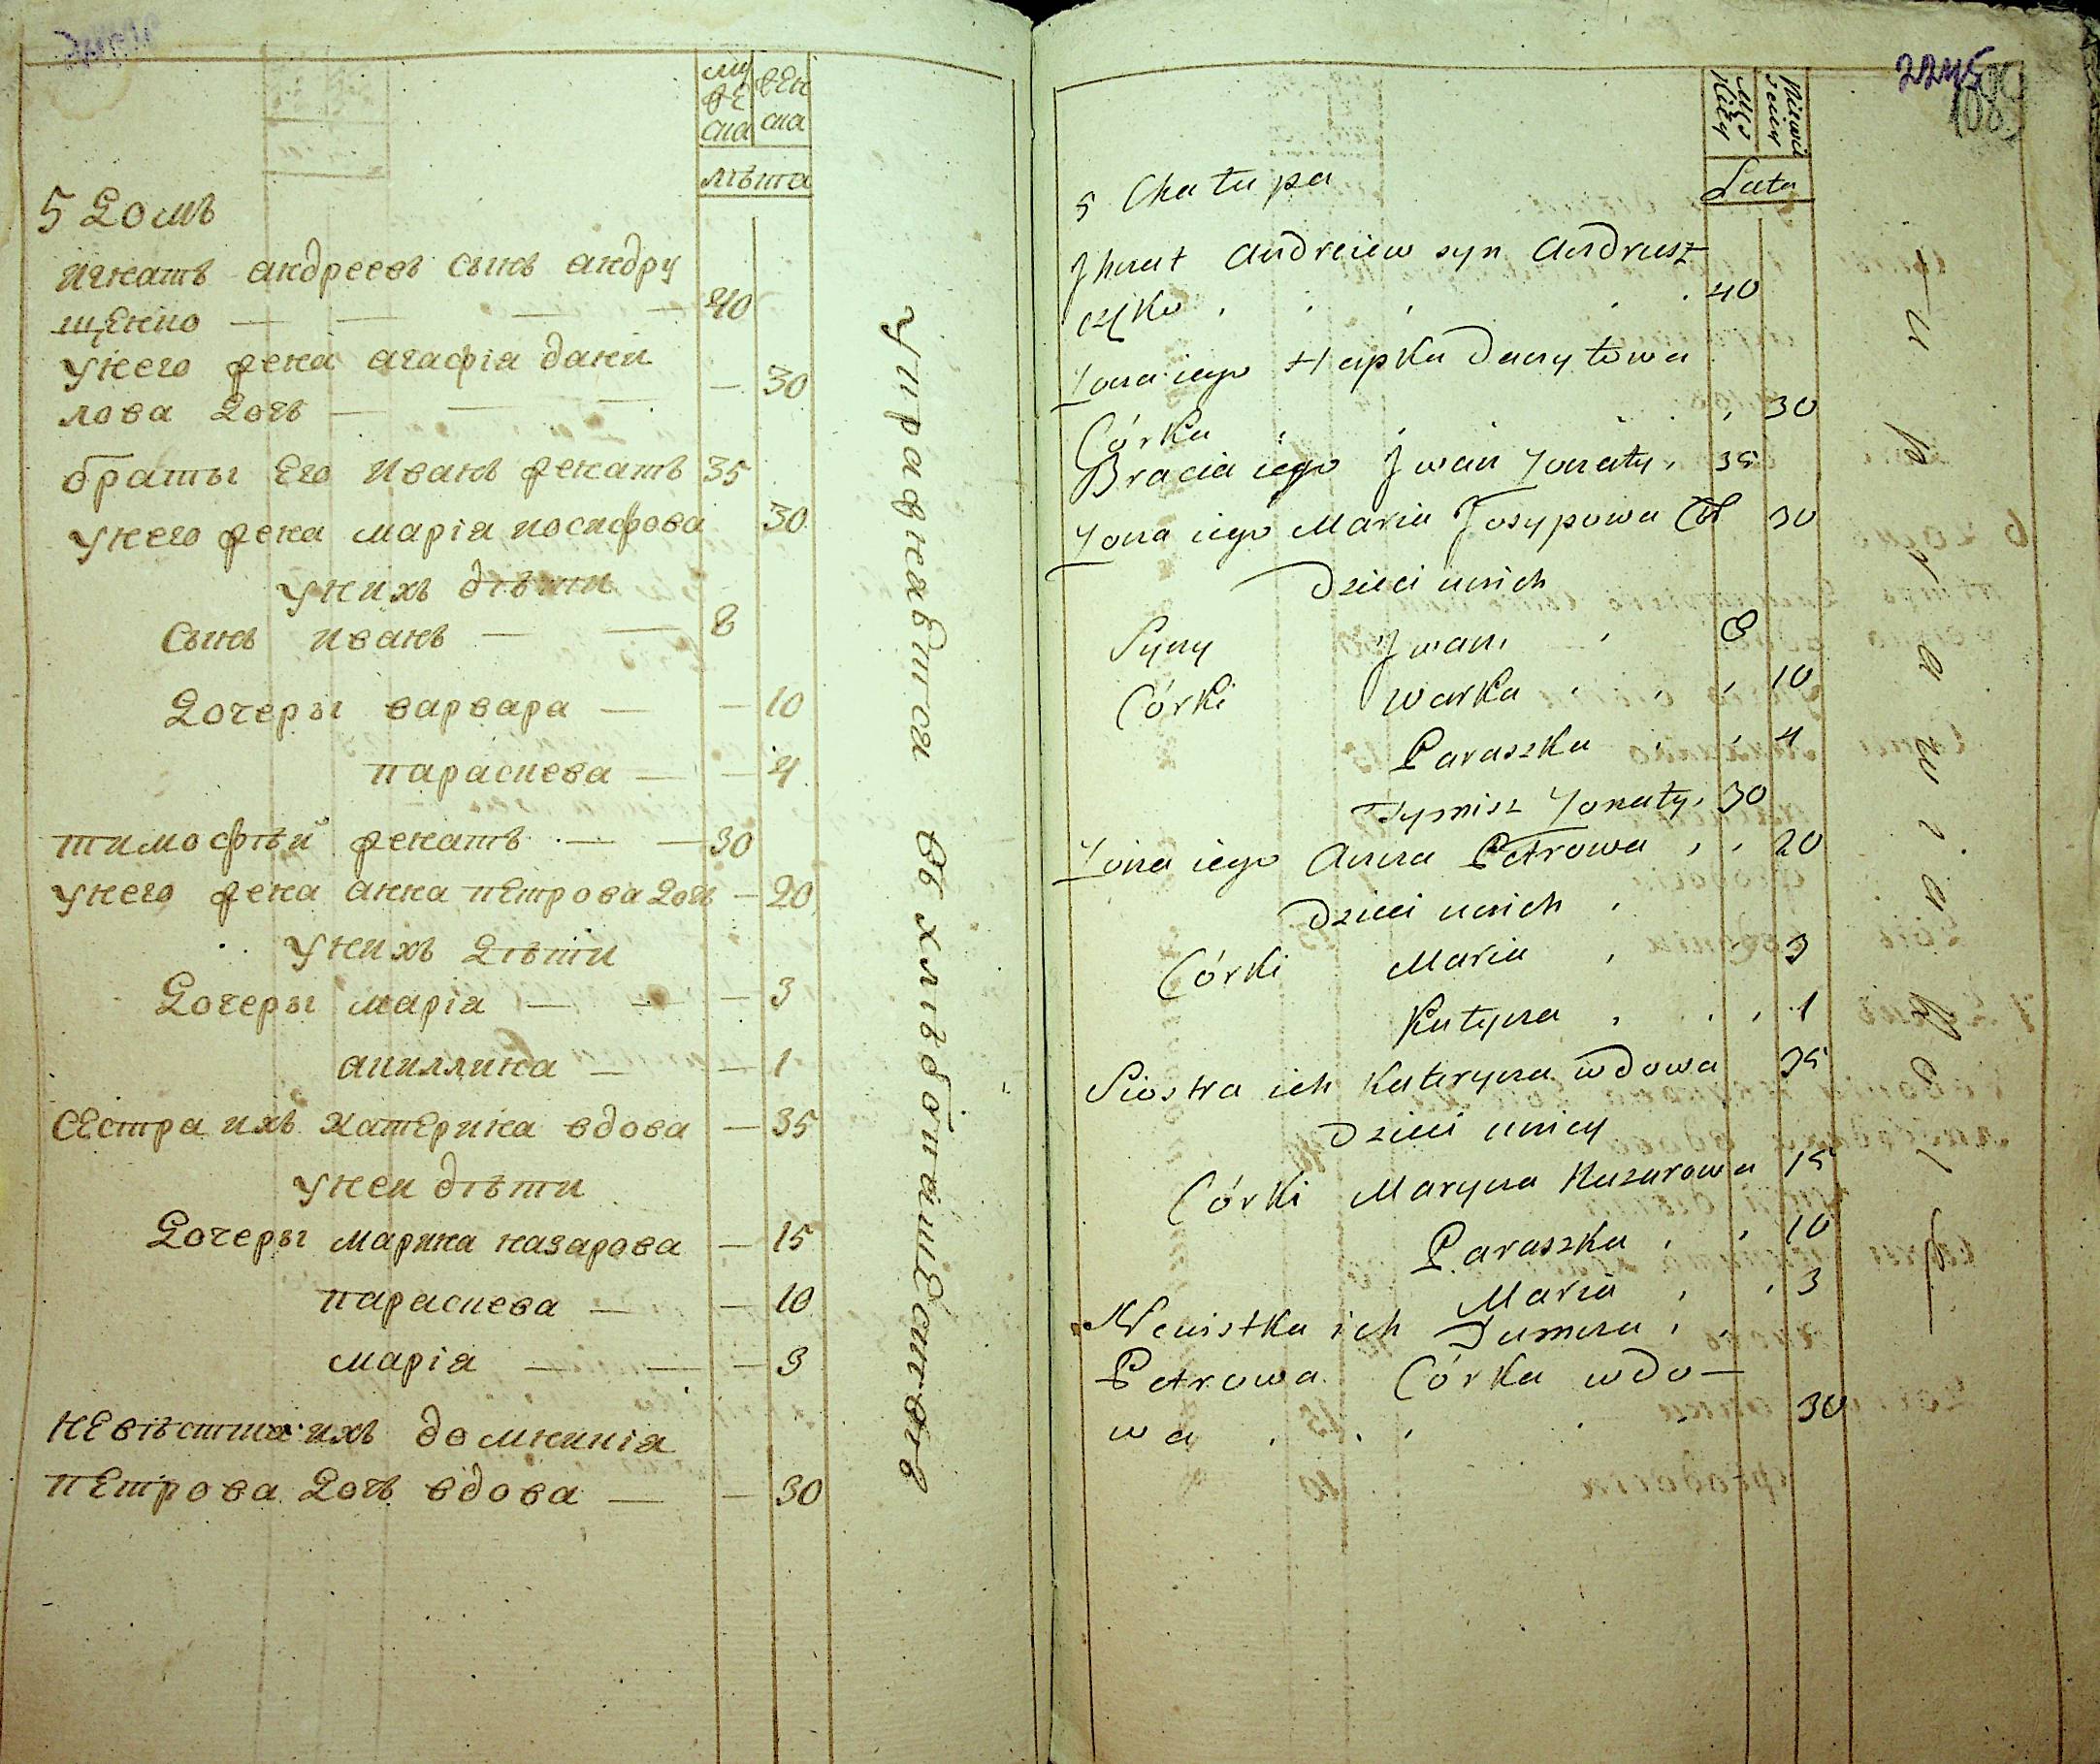 муже
ска
жен
ска
лѣта
5 Домъ
игнатъ андреевъ сынъ андру
щенко — — — — 40
унего жена агафіа дани
лова дочь — — — — 30
браты его иванъ женатъ 35
унего жена маріа иосифова 30
унихъ дѣти
сынъ иванъ — — 8
дочеры варвара — — 10
параскева — — 4
тимофѣй женатъ — — 30
унего жена анна петрова дочь — 20
унихъ дѣти
дочеры маріа — — — 3
акиллина — — 1
сестра ихъ катерина вдова — 35
унеи дѣти
дочеры марина назарова — 15
параскева — — 10
маріа — — — 3
невѣстка ихъ домникіа
петрова дочь вдова — — 30
упражняется въ хлѣбопашествѣ
2245
108
Męs
kiey
Niewie
sciey
Lata
5 Chałupa
Jhnat Andreiew syn Andrusz
częko . . . . 40
Żona iego Hapka Danyłowa
Córka . . . . 30
Bracia iego Jwan Żonaty, 35
Żona iego Maria Josypowa CR 30
Dzieci unich
Syny Jwan, , 8
Córki Warka , , , 10
Paraszka , , 4
Tymisz Żonaty, 30
Żona iego Anna Petrowa , , 20
Dzieci unich ,
Córki Maria , 3
Kutyna , . , 1
Siostra ich Kateryna wdowa 35
Dzieci uniey
Córki Maryna Nazarowa 15
Paraszka , , 10
Maria , , 3
Newistka ich Dumna ,
Petrowa Córka wdo—
wa . . . . 30